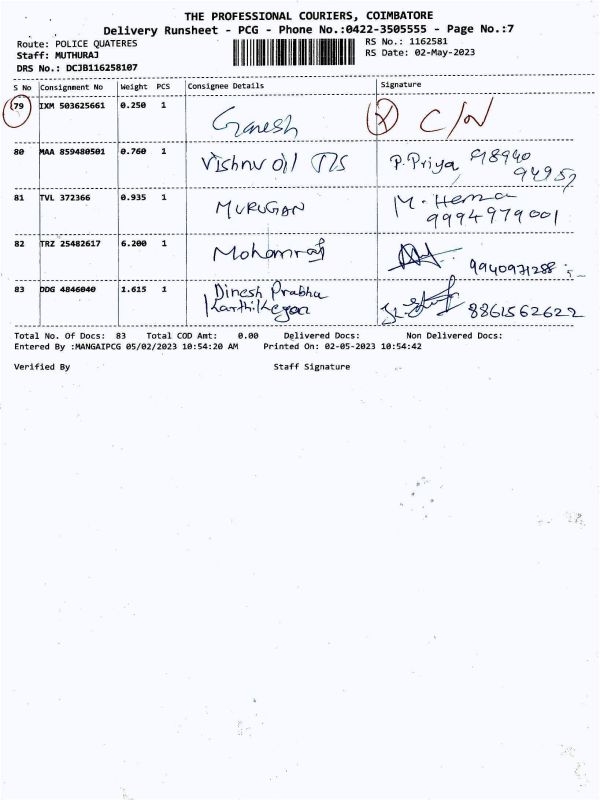 THE PROFESSIONAL COURIERS, COIMBATORE
Delivery Runsheet - PCG - Phone No.:0422-3505555 - Page No.:7
Route: POLICE QUATERES RS No.: 1162581
Staff: MUTHURAJ RS Date: 02-May-2023
DRS No.: DCJB116258107
S No Consignment No Weight PCS Consignee Details Signature
79 IXM 503625661 0.250 1 Ganesh X C/N
80 MAA 859480501 0.760 1 Vishnu oil P. Priya 98940
94957
81 TVL 372366 0.935 1 MURUGAN M. Hema
9994979001
82 TRZ 25482617 6.200 1 Mohanraj 9940971288
83 DDG 4846040 1.615 1 Dinesh Prabha
Karthikeyan 8861562622
Total No. Of Docs: 83 Total COD Amt: 0.00 Delivered Docs: Non Delivered Docs:
Entered By :MANGAIPCG 05/02/2023 10:54:20 AM Printed On: 02-05-2023 10:54:42
Verified By Staff Signature